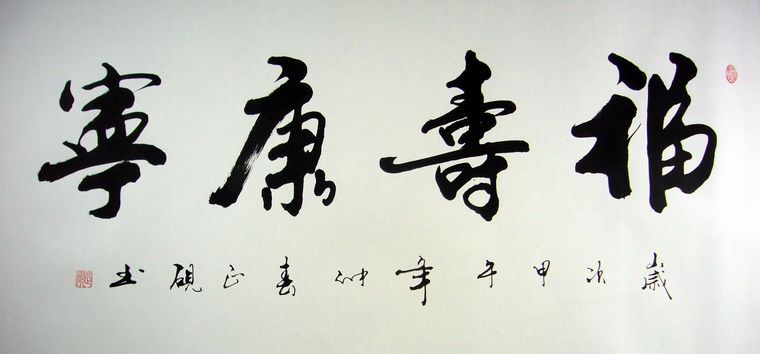 福壽康寧
歲次甲午年仲春正硯书